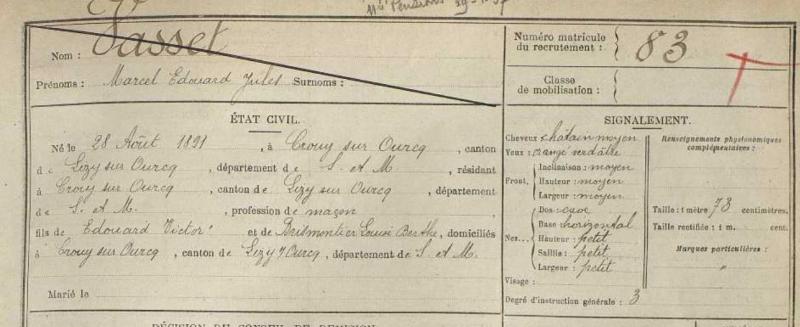 Mis Pensions
Nom : Vasset
Prénoms : Marcel Edouard Jules Surnoms :
Numéro matricule
du recrutement : 83
Classe
de mobilisation :
ÉTAT CIVIL.
Né le 28 Août 1891, à Crouy sur Ourcq, canton
de Lizy sur Ourcq, département de S. et M., résidant
à Crouy sur Ourcq, canton de Lizy sur Ourcq, département
de S. et M., profession de maçon
fils de Edouard Victor et de Brismontier Louise Berthe, domiciliés
à Crouy sur Ourcq, canton de Lizy s/ Ourcq, département de S. et M.
Marié le
SIGNALEMENT.
Cheveux châtain moyen
Yeux : orangé verdâtre
Front. Inclinaison : moyen
Hauteur : moyen
Largeur : moyen
Nez. Dos : cave
Base horizontal
Hauteur : petit
Saillie : petit
Largeur : petit
Visage :
Degré d'instruction générale : 3
Renseignements physionomiques
complémentaires :
Taille : 1 mètre 73 centimètres.
Taille rectifiée : 1 m. cent.
Marques particulières :
"
DÉCISION DU CONSEIL DE REVISION